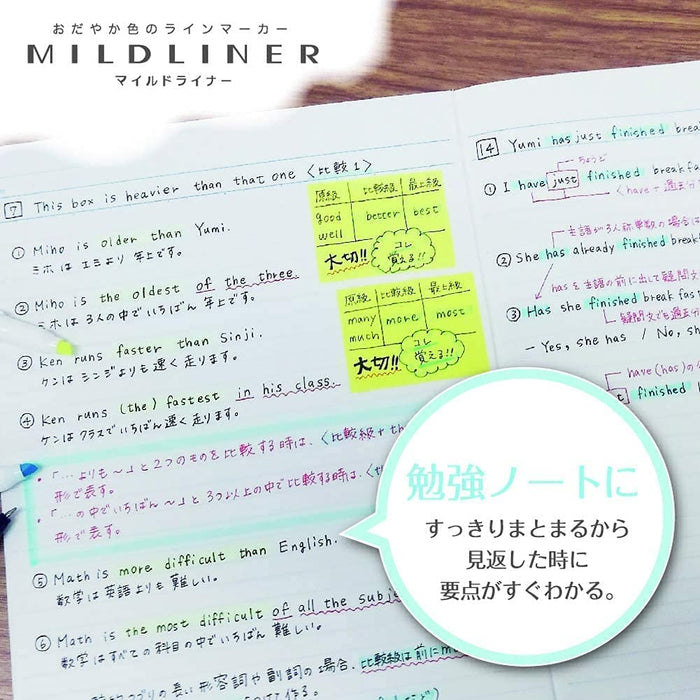 おだやか色のラインマーカー
MILDLINER
マイルドライナー
7 This box is heavier than that one 〈比較1〉
① Miho is older than Yumi.
ミホは エミより 年上です。
② Miho is the oldest of the three.
ミホは 3人の中でいちばん 年上です。
③ Ken runs faster than Sinji.
ケンはシンジよりも速く走ります。
④ Ken runs (the) fastest in his class.
ケンはクラスでいちばん速く走ります。
・「…よりも〜」と2つのものを比較する時は、〈比較級+th
形で表す。
・「…の中でいちばん〜」と3つ以上の中で比較する時は、〈th
形で表す。
⑤ Math is more difficult than English.
数学は英語よりも難しい。
⑥ Math is the most difficult of all the subje
数学はすべての科目の中でいちばん難しい。
つづりの長い形容詞や副詞の場合、比較級は前にm
原級 比較級 最上級
good better best
well
大切!! コレ
覚える!!
原級 比較級 最上級
many more most
much
大切!! コレ
覚える!!
14 Yumi has just finished break
ちょうど
① I have just finished breakfa
〈have+過去分
主語が3人称単数の場合は
② She has already finished break
hasを主語の前に出して疑問文
③ Has she finished break fast
疑問文でも過去分
- Yes, she has / No, sh
have(has)の
finished
勉強ノートに
すっきりまとまるから
見返した時に
要点がすぐわかる。